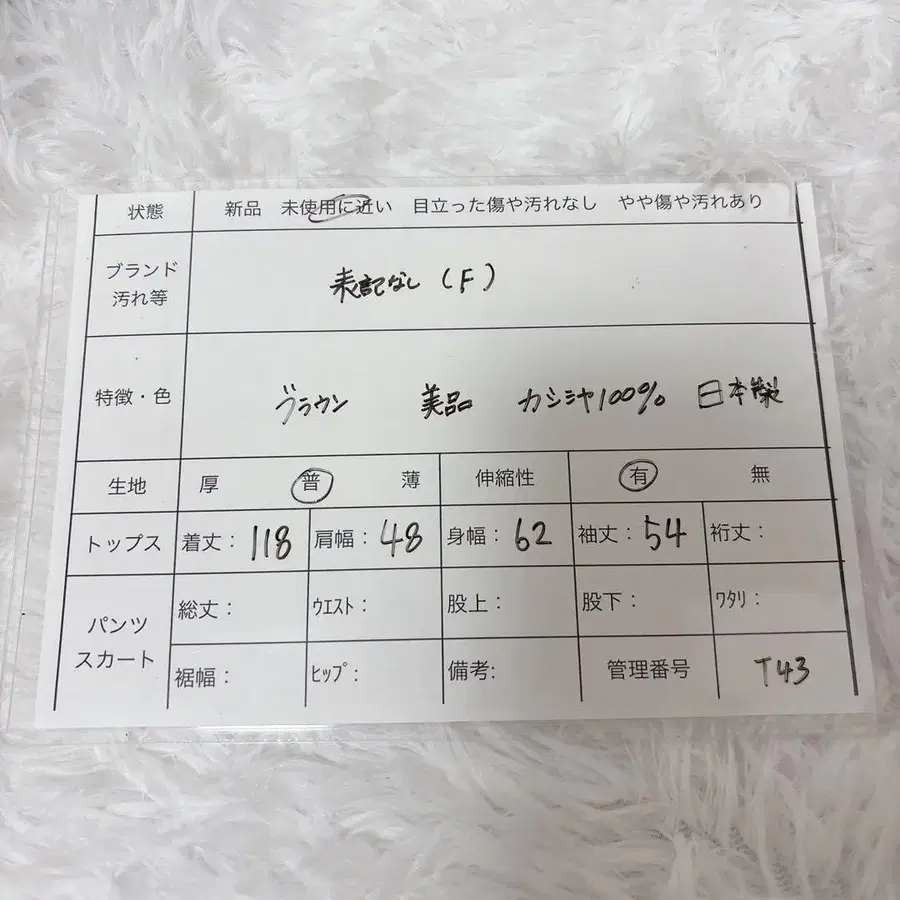 状態 新品 未使用に近い 目立った傷や汚れなし やや傷や汚れあり
ブランド
汚れ等
表記なし (F)
特徴・色 ブラウン 美品 カシミヤ100% 日本製
生地 厚 普 薄 伸縮性 有 無
トップス 着丈: 118 肩幅: 48 身幅: 62 袖丈: 54 裄丈:
パンツ
スカート
総丈: ウエスト: 股上: 股下: ワタリ:
裾幅: ヒップ: 備考: 管理番号 T43